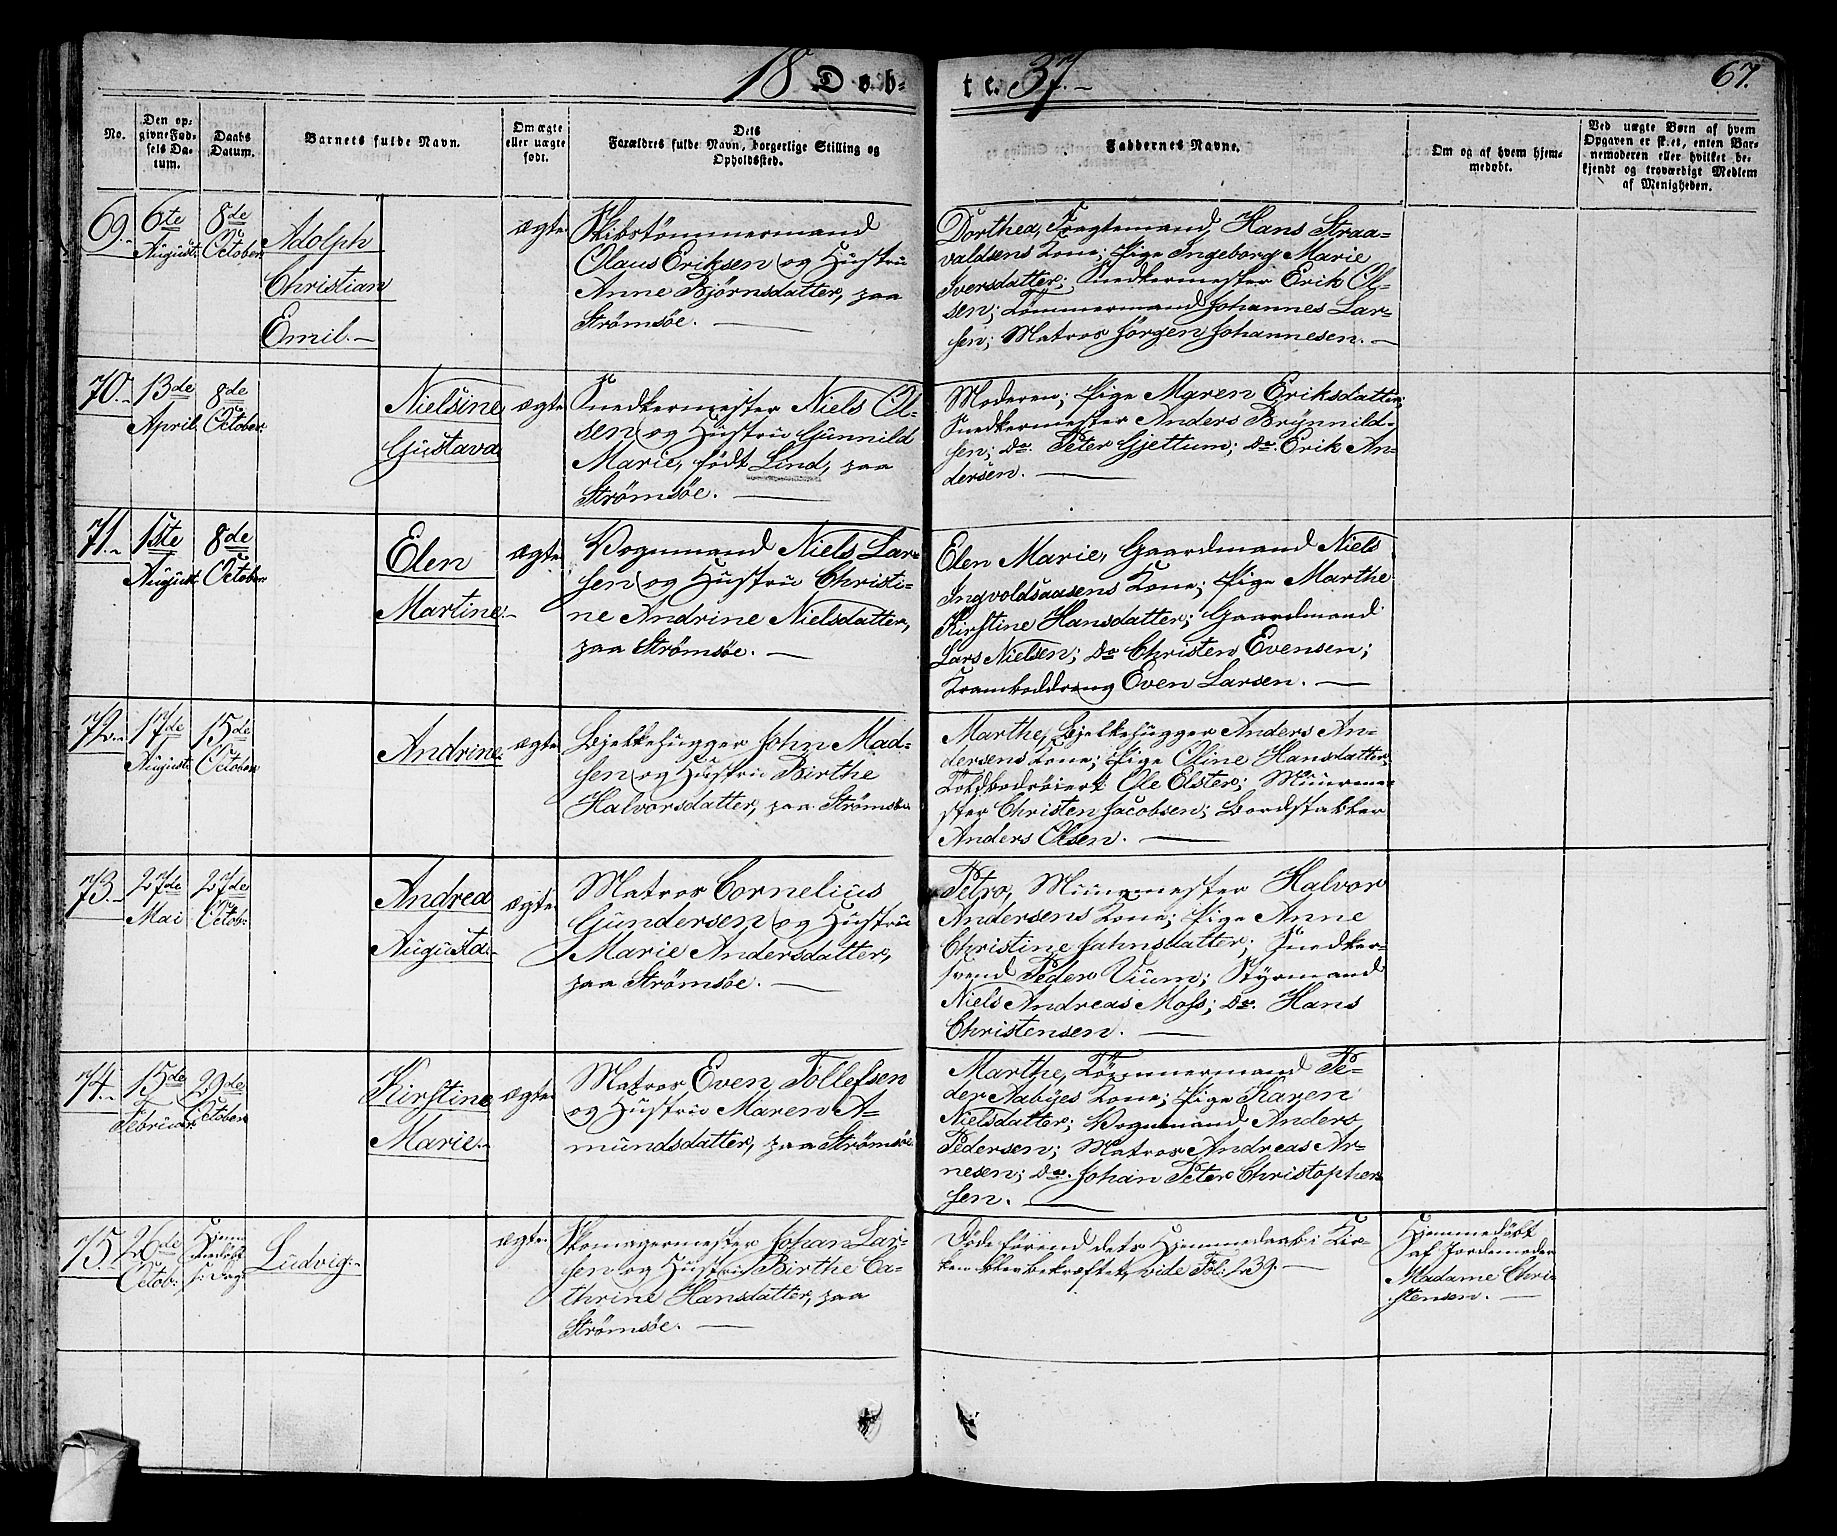 18 Døb-
te. 37.-
67.
No.
Den opgivne Fødsels Datum.
Daabs Datum.
Barnets fulde Navn.
Om ægte eller uægte født.
Dets Forældres fulde Navn, borgerlige Stilling og Opholdssted.
Faddernes Navne.
Om og af hvem hjemmedøbt.
Ved uægte Børn af hvem Opgaven er skeet, enten Barnemoderen eller hvilket bekjendt og troværdigt Medlem af Menigheden.
69.-
6te August.
8de October
Adolph
Christian
Emil.-
ægte
Skibstømmermand
Olaus Eriksen og Hustru
Anne Bjørnsdatter, paa
Strømsøe. —
Dorthea, Fragtemand Hans Straa-
valdsens Kone; Pige Ingeborg Marie
Iversdatter; Snedkermester Erik Ol-
sen; Tømmermand Johannes Lar-
sen; Matros Jørgen Johannesen. —
70.-
13de April.
8de October.
Nielsine
Gustava
ægte
Snedkermester Niels Ol-
sen og Hustru Gunnild
Marie, født Lind, paa
Strømsøe. —
Moderen; Pige Maren Eriksdatter;
Snedkermester Anders Brynnild-
sen; Do. Peter Gjettum; Do. Erik An-
dersen. —
71.-
1ste August.
8de October
Elen
Martine.-
ægte
Vognmand Niels Lar-
sen og Hustru Christi-
ne Andrine Nielsdatter,
paa Strømsøe. —
Elen Marie, Gaardmand Niels
Ingvoldsaasens Kone; Pige Marthe
Kirstine Hansdatter; Gaardmand
Lars Nielsen; Do Christen Evensen;
Kramboddreng Even Larsen. —
72.-
17de August
15de October
Andrine.
ægte
Bjelkehugger John Mad-
sen og Hustru Birthe
Halvorsdatter, paa Strømsøe
Marthe, Bjelkehugger Anders An-
dersens Kone; Pige Oline Hansdatter;
Ole Elster; Muurme-
ster Christen Jacobsen; Bordstabler
Anders Olsen. —
73.-
27de Mai
27de Octob.
Andrea
Augusta.-
ægte
Matros Cornelius
Gundersen og Hustru
Marie Andersdatter,
paa Strømsøe. —
Petro, Muurmester Halvor
Andersens Kone; Pige Anne
Christine Jahnsdatter; Snedker-
svend Peder Vium; Styrmand
Niels Andreas Moss; Do. Hans
Christensen. —
74.-
15de Februar
29de October
Kirstine
Marie.-
ægte
Matros Even Tollefsen
og Hustru Maren A-
mundsdatter, paa Strømsøe.
Marthe, Tømmermand Pe-
der Aabyes Kone; Pige Karen
Nielsdatter; Vognmand Anders
Pedersen; Matros Andreas Ar-
nesen; Do. Johan Peter Christopher-
sen. —
75.
26de Octob.
Hjemmedøbt s: Dag
Ludvig.-
ægte.
Skomagermester Johan Lar-
sen og Hustru Birthe Ca-
thrine Hansdatter, paa
Strømsøe. —
Døde førend dets Hjemmedaab i Kir-
ken blev bekræftet, vide Fol: 239. —
Hjemmedøbt
af Jordemoder
Madame Chri-
stensen. —